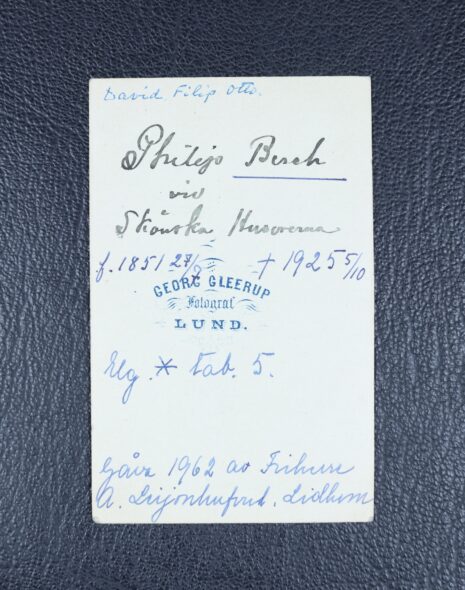 David Filip Otto.
Philip Berch
vid
Skånska Husarerna
f. 1851 27/7 † 1925 5/10
GEORG GLEERUP
Fotograf
LUND.
Elg. * tab. 5.
Gåva 1962 av Friherre
A. Leijonhufvud. Lidhem